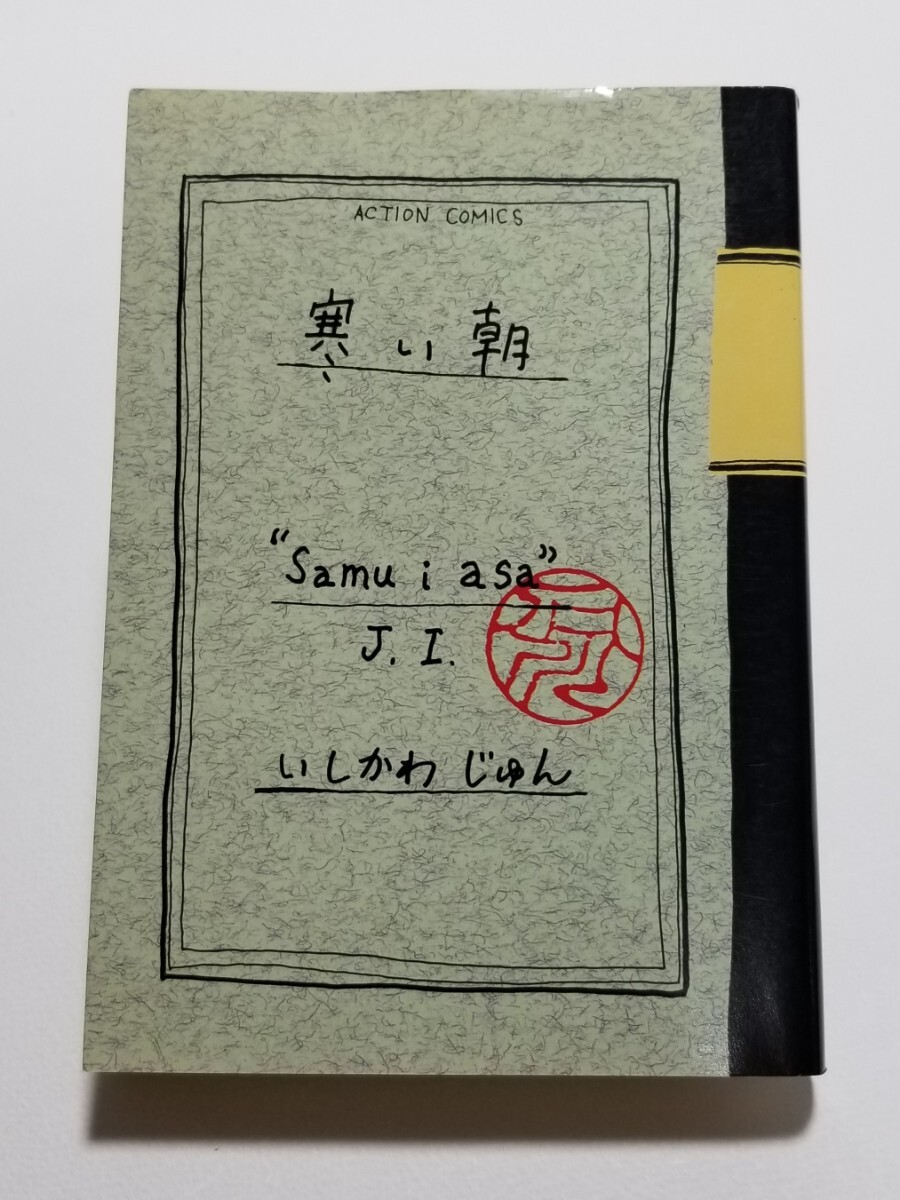 ACTION COMICS
寒い朝
“Samui asa”
J. I.
いしかわじゅん